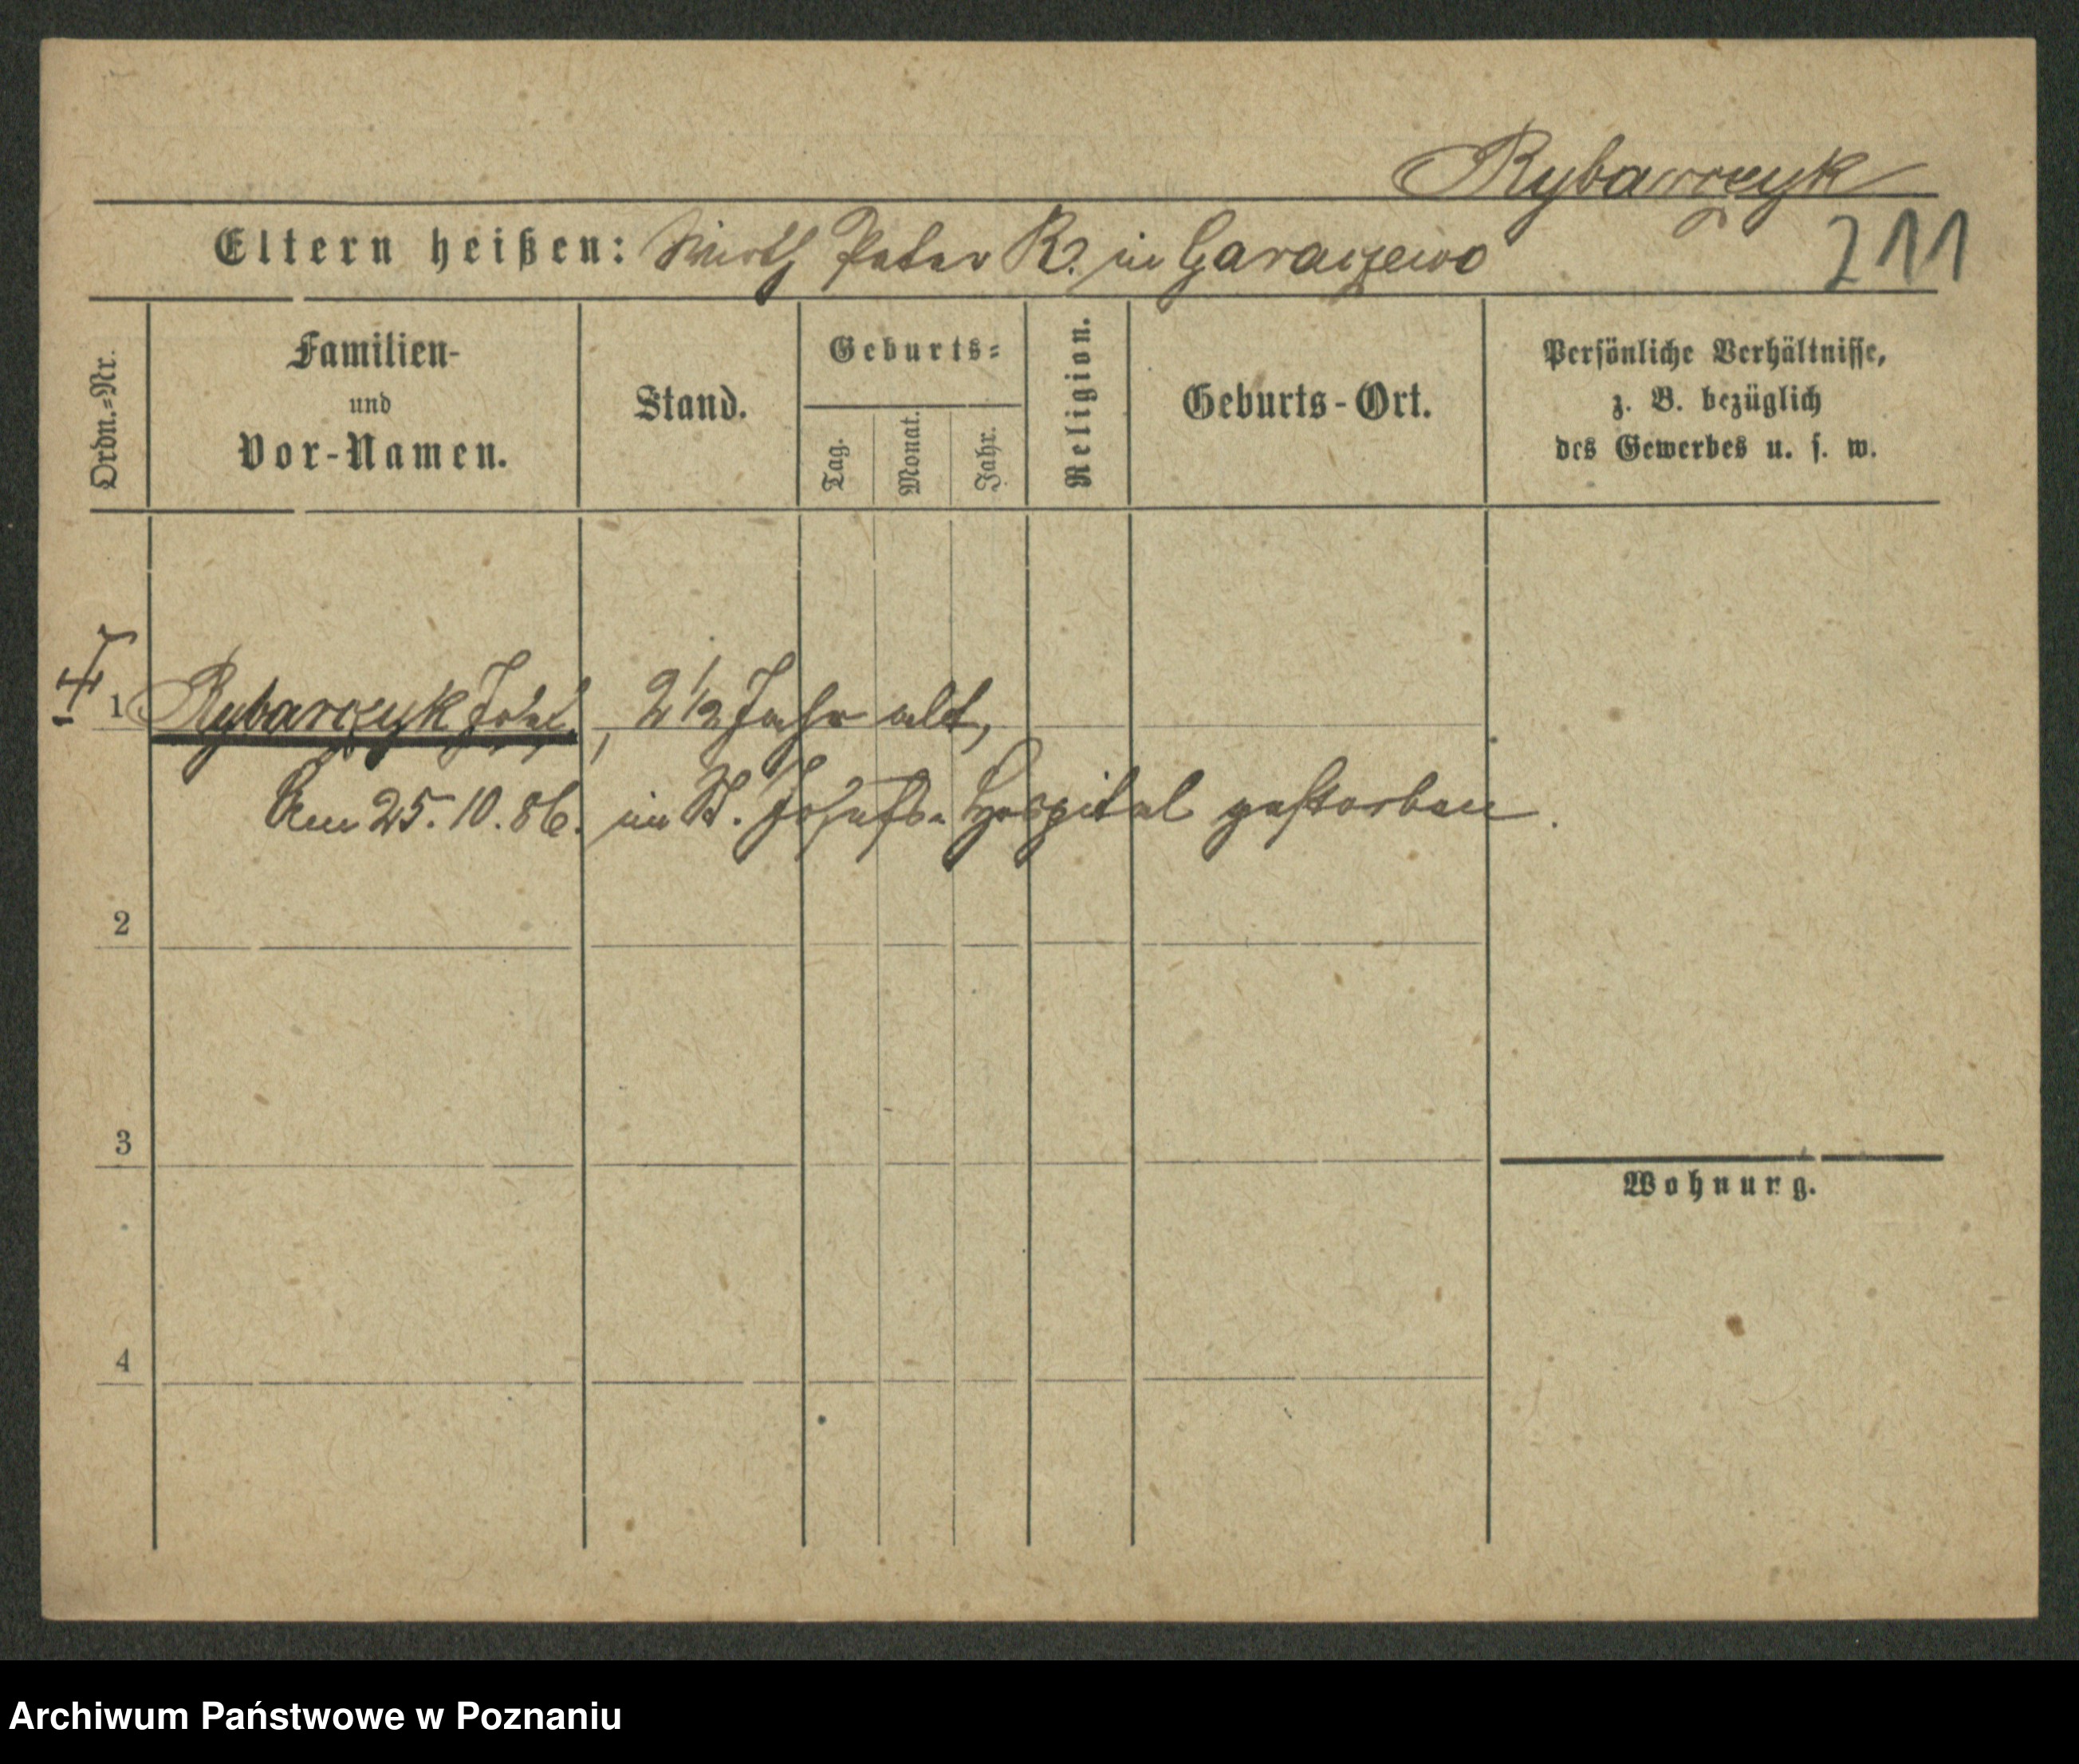 Rybarczyk
Eltern heißen: Wirth Peter R. in Garaszewo
211
Ordn.-Nr.
Familien-
und
Vor-Namen.
Stand.
Geburts-
Tag.
Monat.
Jahr.
Religion.
Geburts-Ort.
Persönliche Verhältnisse,
z. B. bezüglich
des Gewerbes u. s. w.
1 Rybarczyk Josef, 2 1/2 Jahr alt,
Am 25.10.86. im St. Josefs-Hospital gestorben.
2
3
Wohnung.
4
Archiwum Państwowe w Poznaniu